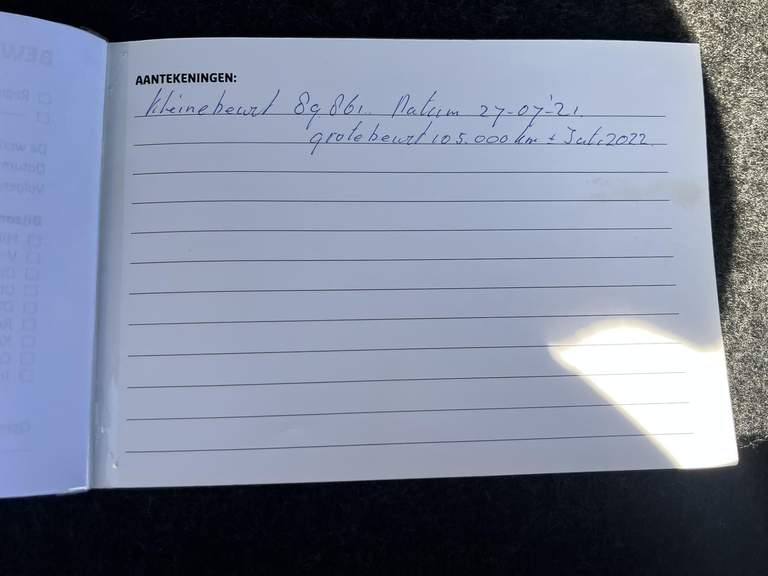 AANTEKENINGEN:
kleinebeurt 89861. Datum 27-07-'21.
grotebeurt 105.000 km ± Juli 2022.